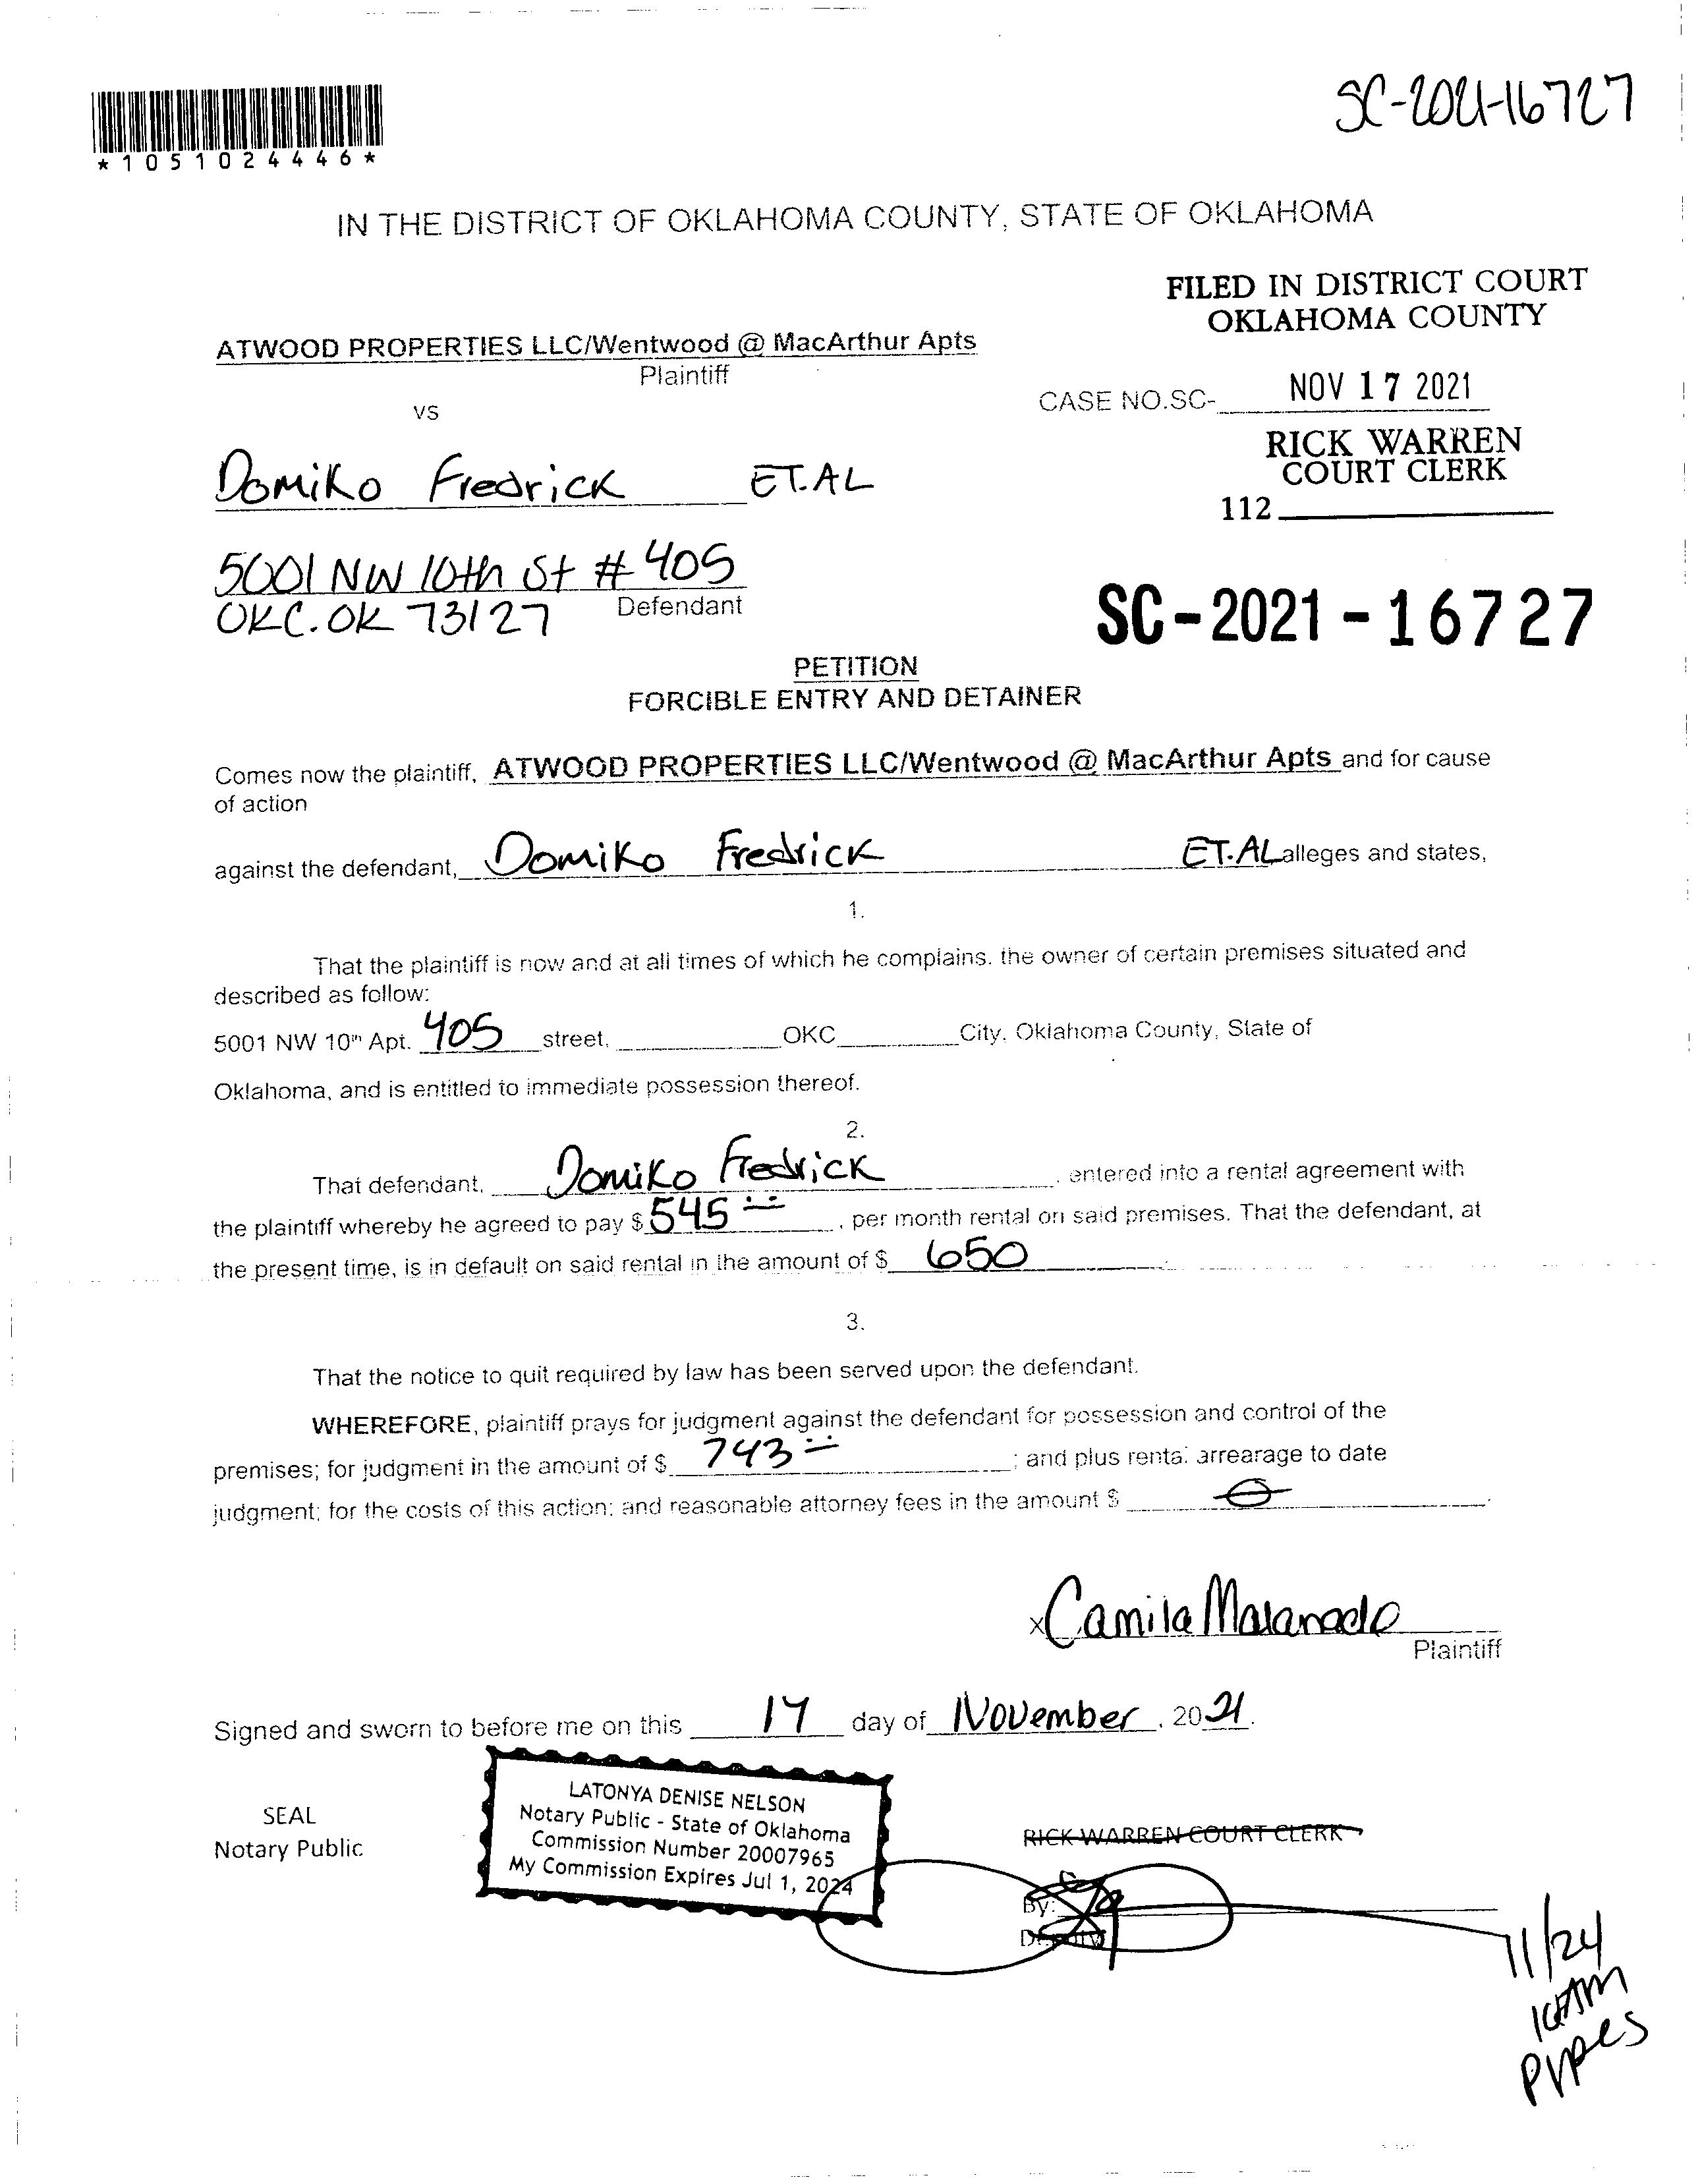 SC-2021-16727
*1051024446*
IN THE DISTRICT OF OKLAHOMA COUNTY, STATE OF OKLAHOMA
FILED IN DISTRICT COURT
OKLAHOMA COUNTY
ATWOOD PROPERTIES LLC/Wentwood @ MacArthur Apts
Plaintiff
NOV 17 2021
CASE NO.SC-
vs
RICK WARREN
COURT CLERK
Domiko Fredrick ET.AL
112
5001 NW 10th St # 405
OKC. OK 73127 Defendant
SC-2021-16727
PETITION
FORCIBLE ENTRY AND DETAINER
Comes now the plaintiff, ATWOOD PROPERTIES LLC/Wentwood @ MacArthur Apts and for cause
of action
against the defendant, Domiko Fredrick ET.AL alleges and states,
1.
That the plaintiff is now and at all times of which he complains. the owner of certain premises situated and
described as follow:
5001 NW 10th Apt. 405 street, OKC City, Oklahoma County, State of
Oklahoma, and is entitled to immediate possession thereof.
2.
That defendant, Domiko Fredrick, entered into a rental agreement with
the plaintiff whereby he agreed to pay $ 545, per month rental on said premises. That the defendant, at
the present time, is in default on said rental in the amount of $ 650.
3.
That the notice to quit required by law has been served upon the defendant.
WHEREFORE, plaintiff prays for judgment against the defendant for possession and control of the
premises; for judgment in the amount of $ 743; and plus rental arrearage to date
judgment; for the costs of this action; and reasonable attorney fees in the amount $ 0.
x Camila
Plaintiff
Signed and sworn to before me on this 17 day of November, 2021.
LATONYA DENISE NELSON
Notary Public - State of Oklahoma
Commission Number 20007965
My Commission Expires Jul 1, 2024
SEAL
Notary Public
RICK WARREN COURT CLERK
By:
Deputy
11/24